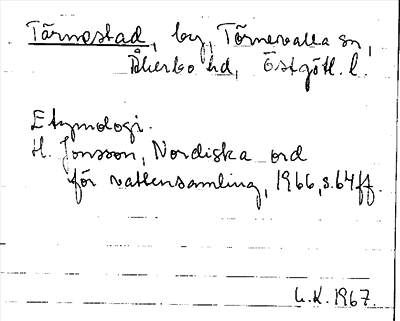 Törnestad, by, Törnevalla sn,
Åkerbo hd, Östgötl. l.
Etymologi.
H. Jonsson, Nordiska ord
för vattensamling, 1966, s. 64 ff.
L.K. 1967.